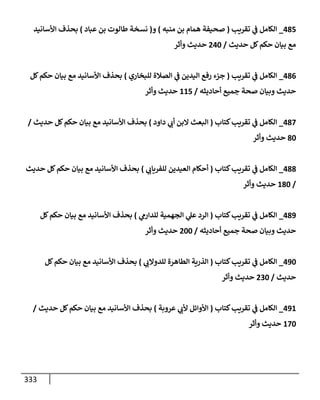 485_ الكامل في تقريب ( صحيفة همام بن منبه ) و( نسخة طالوت بن عباد ) بحذف الأسانيد
مع بيان حكم كل حديث / 240 حديث وأثر
486_ الكامل في تقريب ( جزء رفع اليدين في الصلاة للبخاري ) بحذف الأسانيد مع بيان حكم كل
حديث وبيان صحة جميع أحاديثه / 115 حديث وأثر
487_ الكامل في تقريب كتاب ( البعث لابن أبي داود ) بحذف الأسانيد مع بيان حكم كل حديث /
80 حديث وأثر
488_ الكامل في تقريب كتاب ( أحكام العيدين للفريابي ) بحذف الأسانيد مع بيان حكم كل حديث
/ 180 حديث وأثر
489_ الكامل في تقريب كتاب ( الرد علي الجهمية للدارمي ) بحذف الأسانيد مع بيان حكم كل
حديث وبيان صحة جميع أحاديثه / 200 حديث وأثر
490_ الكامل في تقريب كتاب ( الذرية الطاهرة للدولابي ) بحذف الأسانيد مع بيان حكم كل
حديث / 230 حديث وأثر
491_ الكامل في تقريب كتاب ( الأوائل لأبي عروبة ) بحذف الأسانيد مع بيان حكم كل حديث /
170 حديث وأثر
333